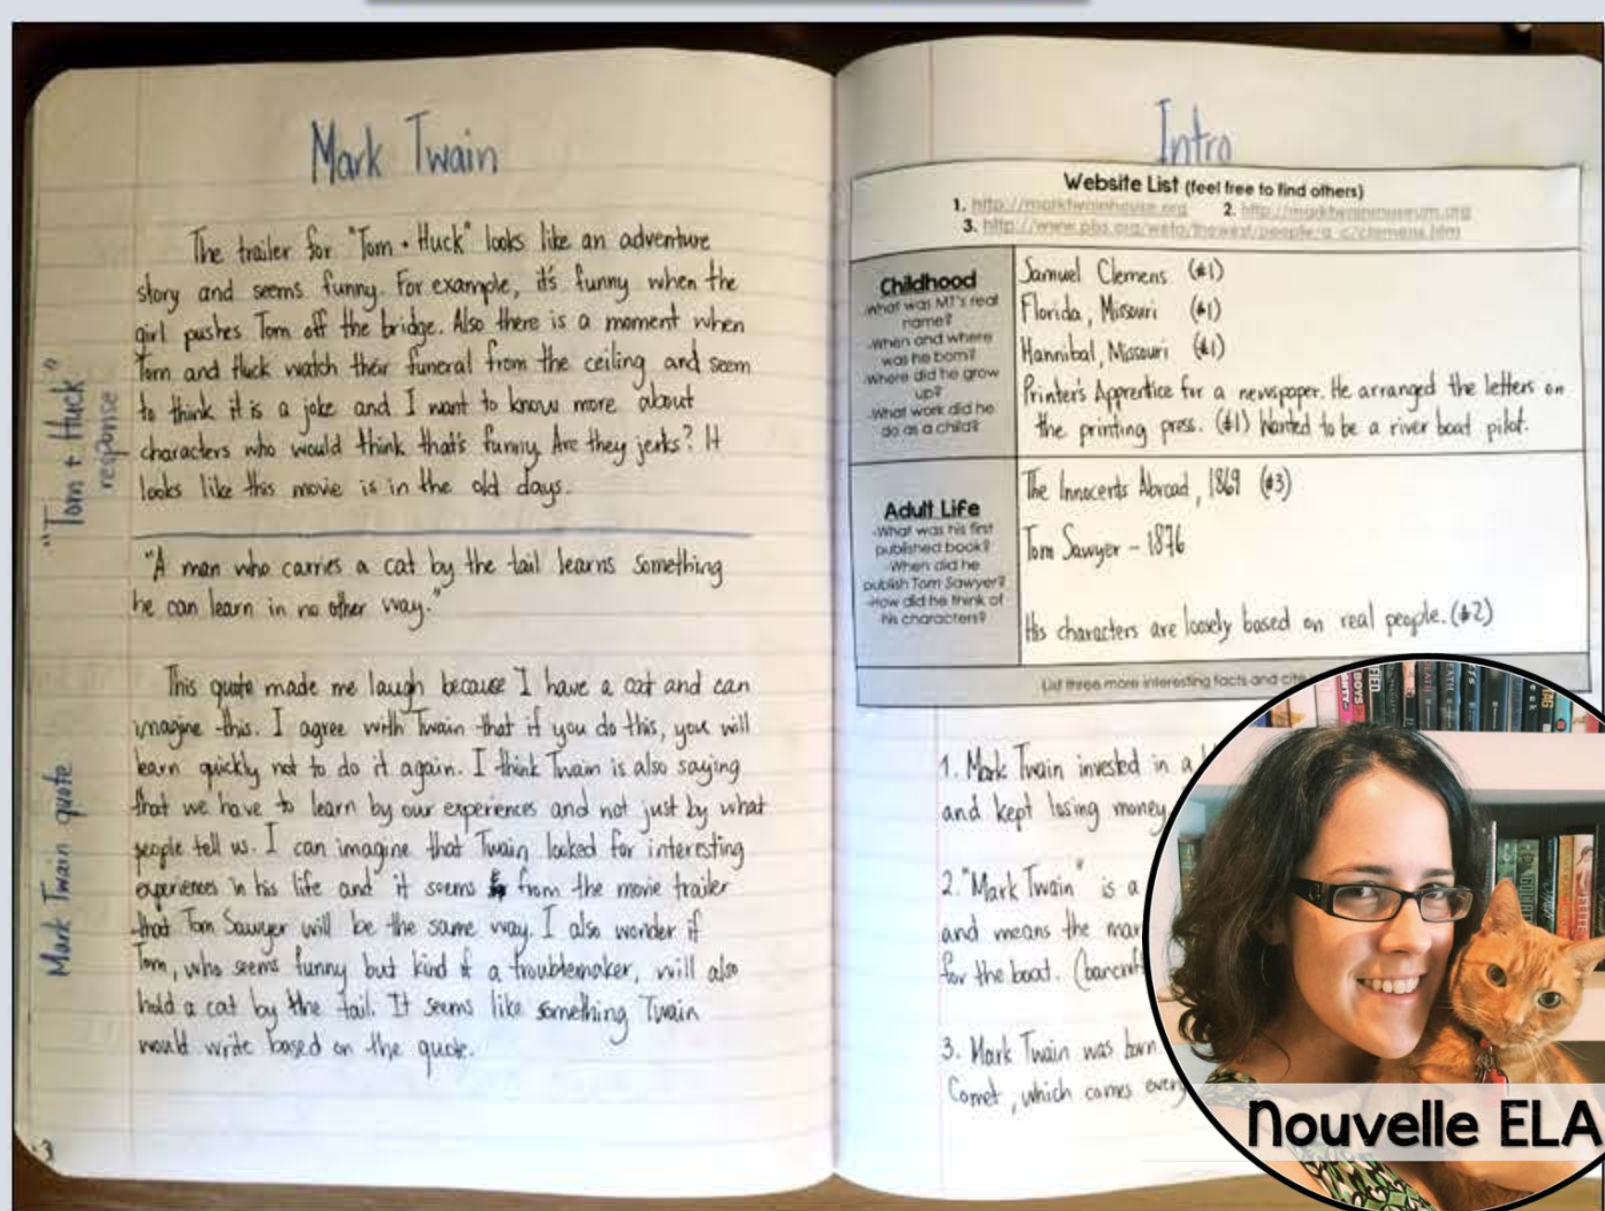 Mark Twain
"Tom + Huck"
response
The trailer for "Tom + Huck" looks like an adventure
story and seems funny. For example, it's funny when the
girl pushes Tom off the bridge. Also there is a moment when
Tom and Huck watch their funeral from the ceiling and seem
to think it is a joke and I want to know more about
characters who would think that's funny. Are they jerks? It
looks like this movie is in the old days.
"A man who carries a cat by the tail learns something
he can learn in no other way."
Mark Twain quote
This quote made me laugh because I have a cat and can
imagine this. I agree with Twain that if you do this, you will
learn quickly not to do it again. I think Twain is also saying
that we have to learn by our experiences and not just by what
people tell us. I can imagine that Twain looked for interesting
experiences in his life and it seems from the movie trailer
that Tom Sawyer will be the same way. I also wonder if
Tom, who seems funny but kind of a troublemaker, will also
hold a cat by the tail. It seems like something Twain
would write based on the quote.
3
Intro
Website List (feel free to find others)
1. http://marktwainhouse.org 2. http://marktwainmuseum.org
3. http://www.pbs.org/weta/thewest/people/a_c/clemens.htm
Childhood
-What was MT's real
name?
-When and where
was he born?
-Where did he grow
up?
-What work did he
do as a child?
Samuel Clemens (#1)
Florida, Missouri (#1)
Hannibal, Missouri (#1)
Printer's Apprentice for a newspaper. He arranged the letters on
the printing press. (#1) Wanted to be a river boat pilot.
Adult Life
-What was his first
published book?
-When did he
publish Tom Sawyer?
-How did he think of
his characters?
The Innocents Abroad, 1869 (#3)
Tom Sawyer - 1876
His characters are loosely based on real people. (#2)
List three more interesting facts and cite
1. Mark Twain invested in a
and kept losing money
2. "Mark Twain" is a
and means the
for the boat.
3. Mark Twain was born
Comet, which comes every
Nouvelle ELA